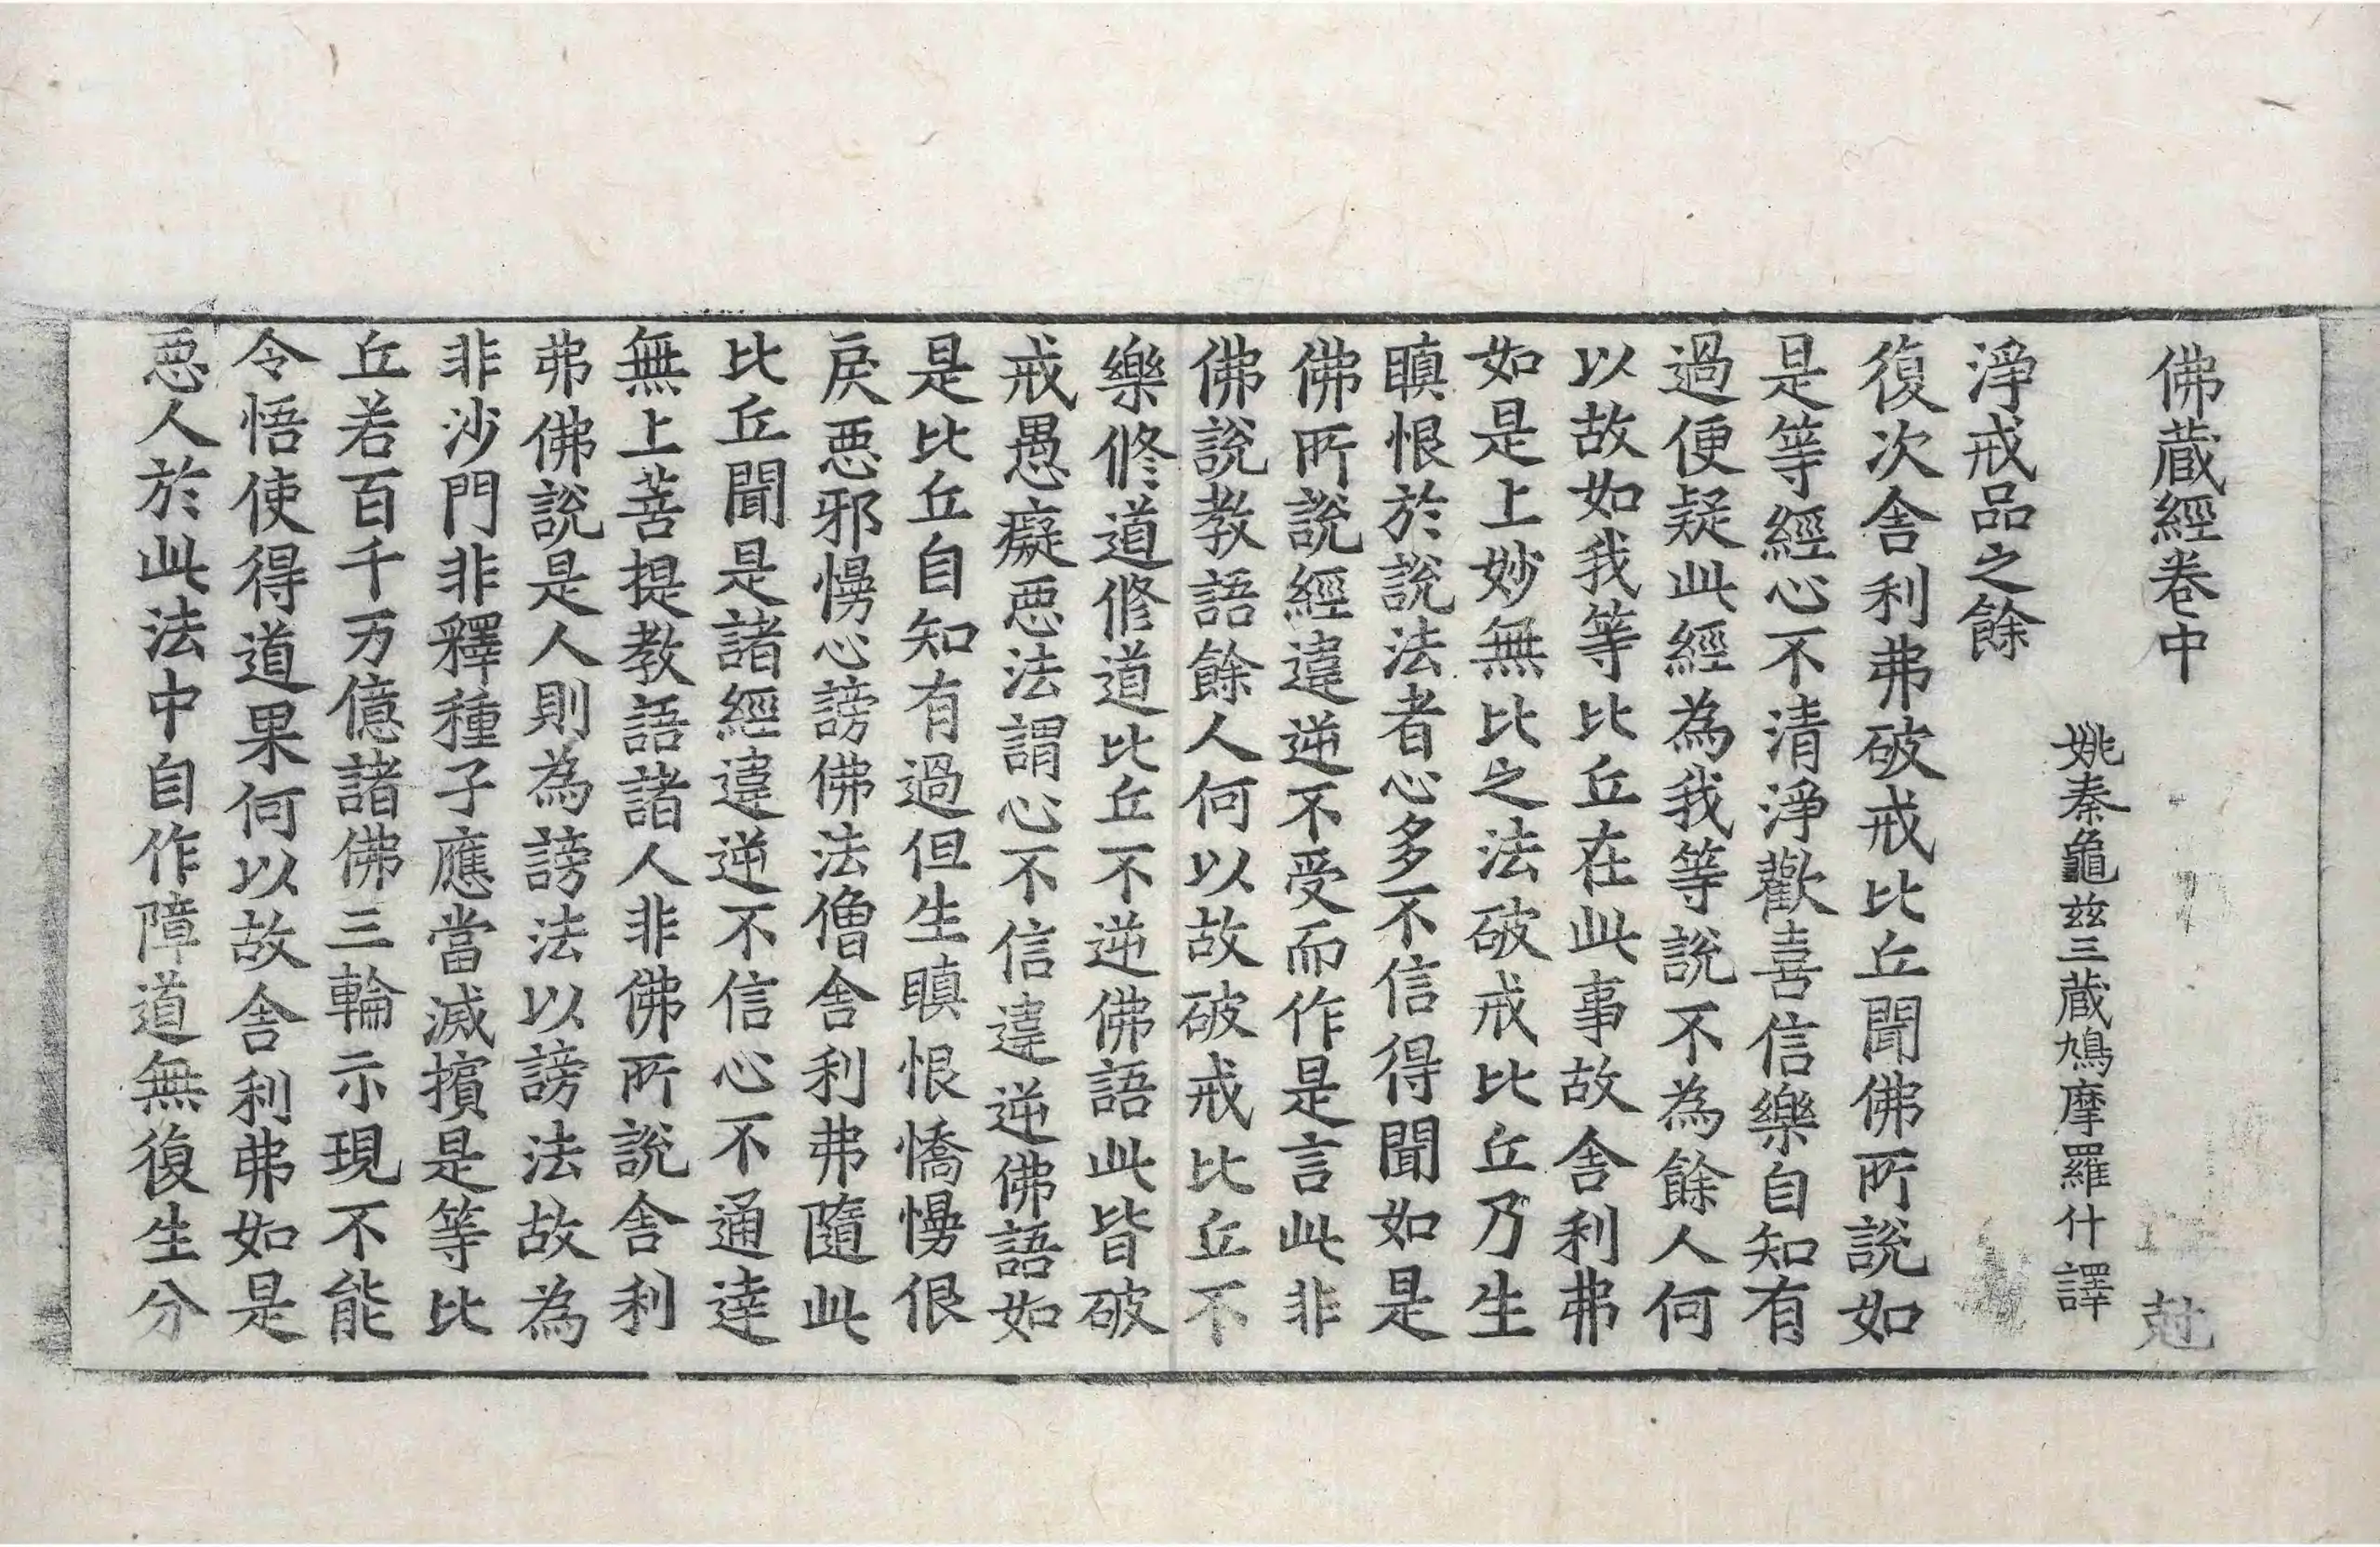 佛蔵經卷中 尅
姚秦龜兹三蔵鳩摩羅什譯
淨戒品之餘
復次舎利弗破戒比丘聞佛所說如
是等經心不清淨歡喜信樂自知有
過便疑此經為我等說不為餘人何
以故如我等比丘在此事故舎利弗
如是上妙無比之法破戒比丘乃生
瞋恨於說法者心多不信得聞如是
佛所說經違逆不受而作是言此非
佛說教語餘人何以故破戒比丘不
樂修道修道比丘不逆佛語此皆破
戒愚癡惡法謂心不信違逆佛語如
是比丘自知有過但生瞋恨憍慢佷
戾惡邪慢心謗佛法僧舎利弗隨此
比丘聞是諸經違逆不信心不通達
無上菩提教語諸人非佛所說舎利
弗佛說是人則為謗法以謗法故為
非沙門非釋種子應當滅擯是等比
丘若百千万億諸佛三輪示現不能
令悟使得道果何以故舎利弗如是
惡人於此法中自作障道無復生分